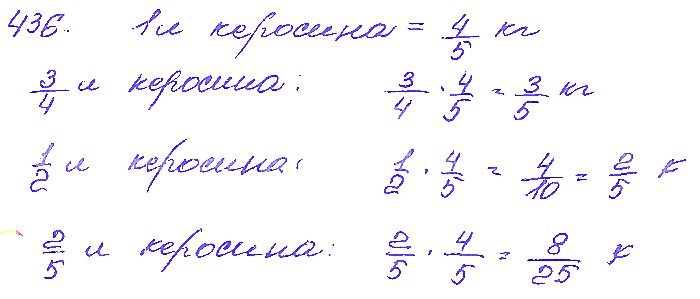 436. 1л керосина = 4/5 кг
3/4 л керосина: 3/4 · 4/5 = 3/5 кг
1/2 л керосина: 1/2 · 4/5 = 4/10 = 2/5 к
2/5 л керосина: 2/5 · 4/5 = 8/25 к